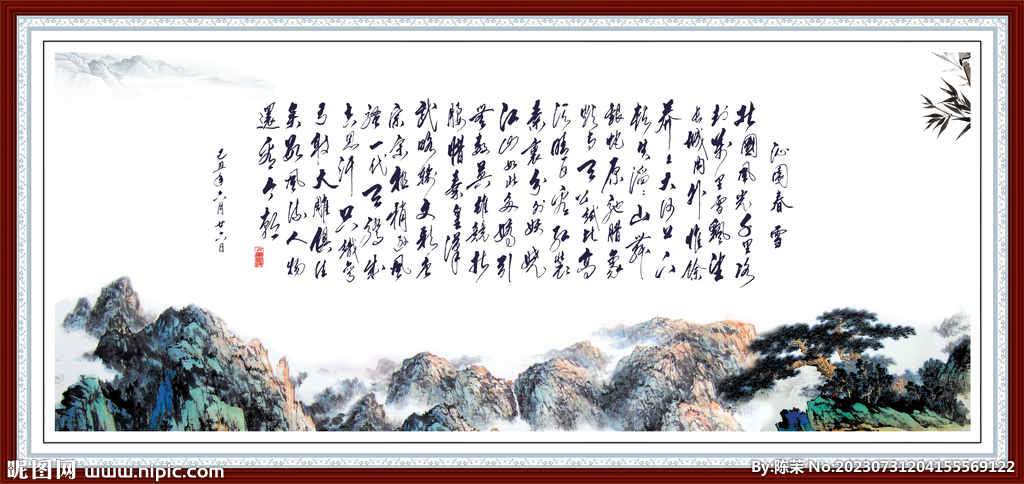 沁園春 雪
北國風光千里冰
封萬里雪飄望
長城內外惟餘
莽々大河上下
頓失滔々山舞
銀蛇原馳臘象
欲與天公試比高
須晴日看紅裝
素裹分外妖嬈
江山如此多嬌引
無數英雄競折
腰惜秦皇漢
武略輸文彩唐
宗宋祖稍遜風
騷一代天驕成
吉思汗只識彎
弓射大雕俱往
矣數風流人物
還看今朝
己丑年六月廿六日
昵图网 www.nipic.com
By:陈茉 No:20230731204155569122